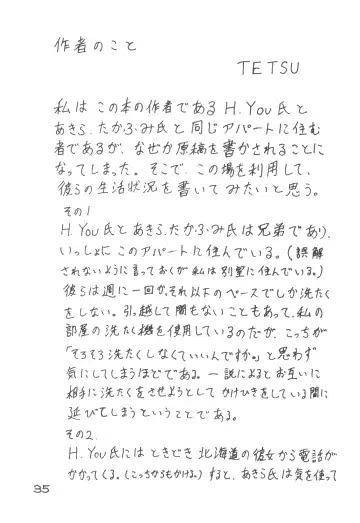 作者のこと
TETSU
私は この本の作者である H.You氏と
あきら.たかふみ氏と 同じアパートに住む
者であるが、なぜか原稿を書かされることに
なってしまった。そこで、この場を利用して、
彼らの生活状況を書いて みたいと思う。
その1
H.You氏と あきら.たかふみ氏は兄弟であり、
いっしょに このアパートに住んでいる。(誤解
されないように言っておくが 私は別室に住んでいる。)
彼らは週に一回か、それ以下のペースでしか洗たく
をしない。引っ越して間もないこともあって、私の
部屋の洗たく機を使用しているのだが、こっちが
「そろそろ洗たくしなくていいんですか。」と思わず
気にしてしまうほどである。一説によると お互いに
相手に洗たくをさせようとして かけひきをしている間に
延びてしまうということである。
その2.
H.You氏には ときどき 北海道の彼女から電話が
かかってくる。(こっちからもかける。) すると、あきら氏は気を使って
35